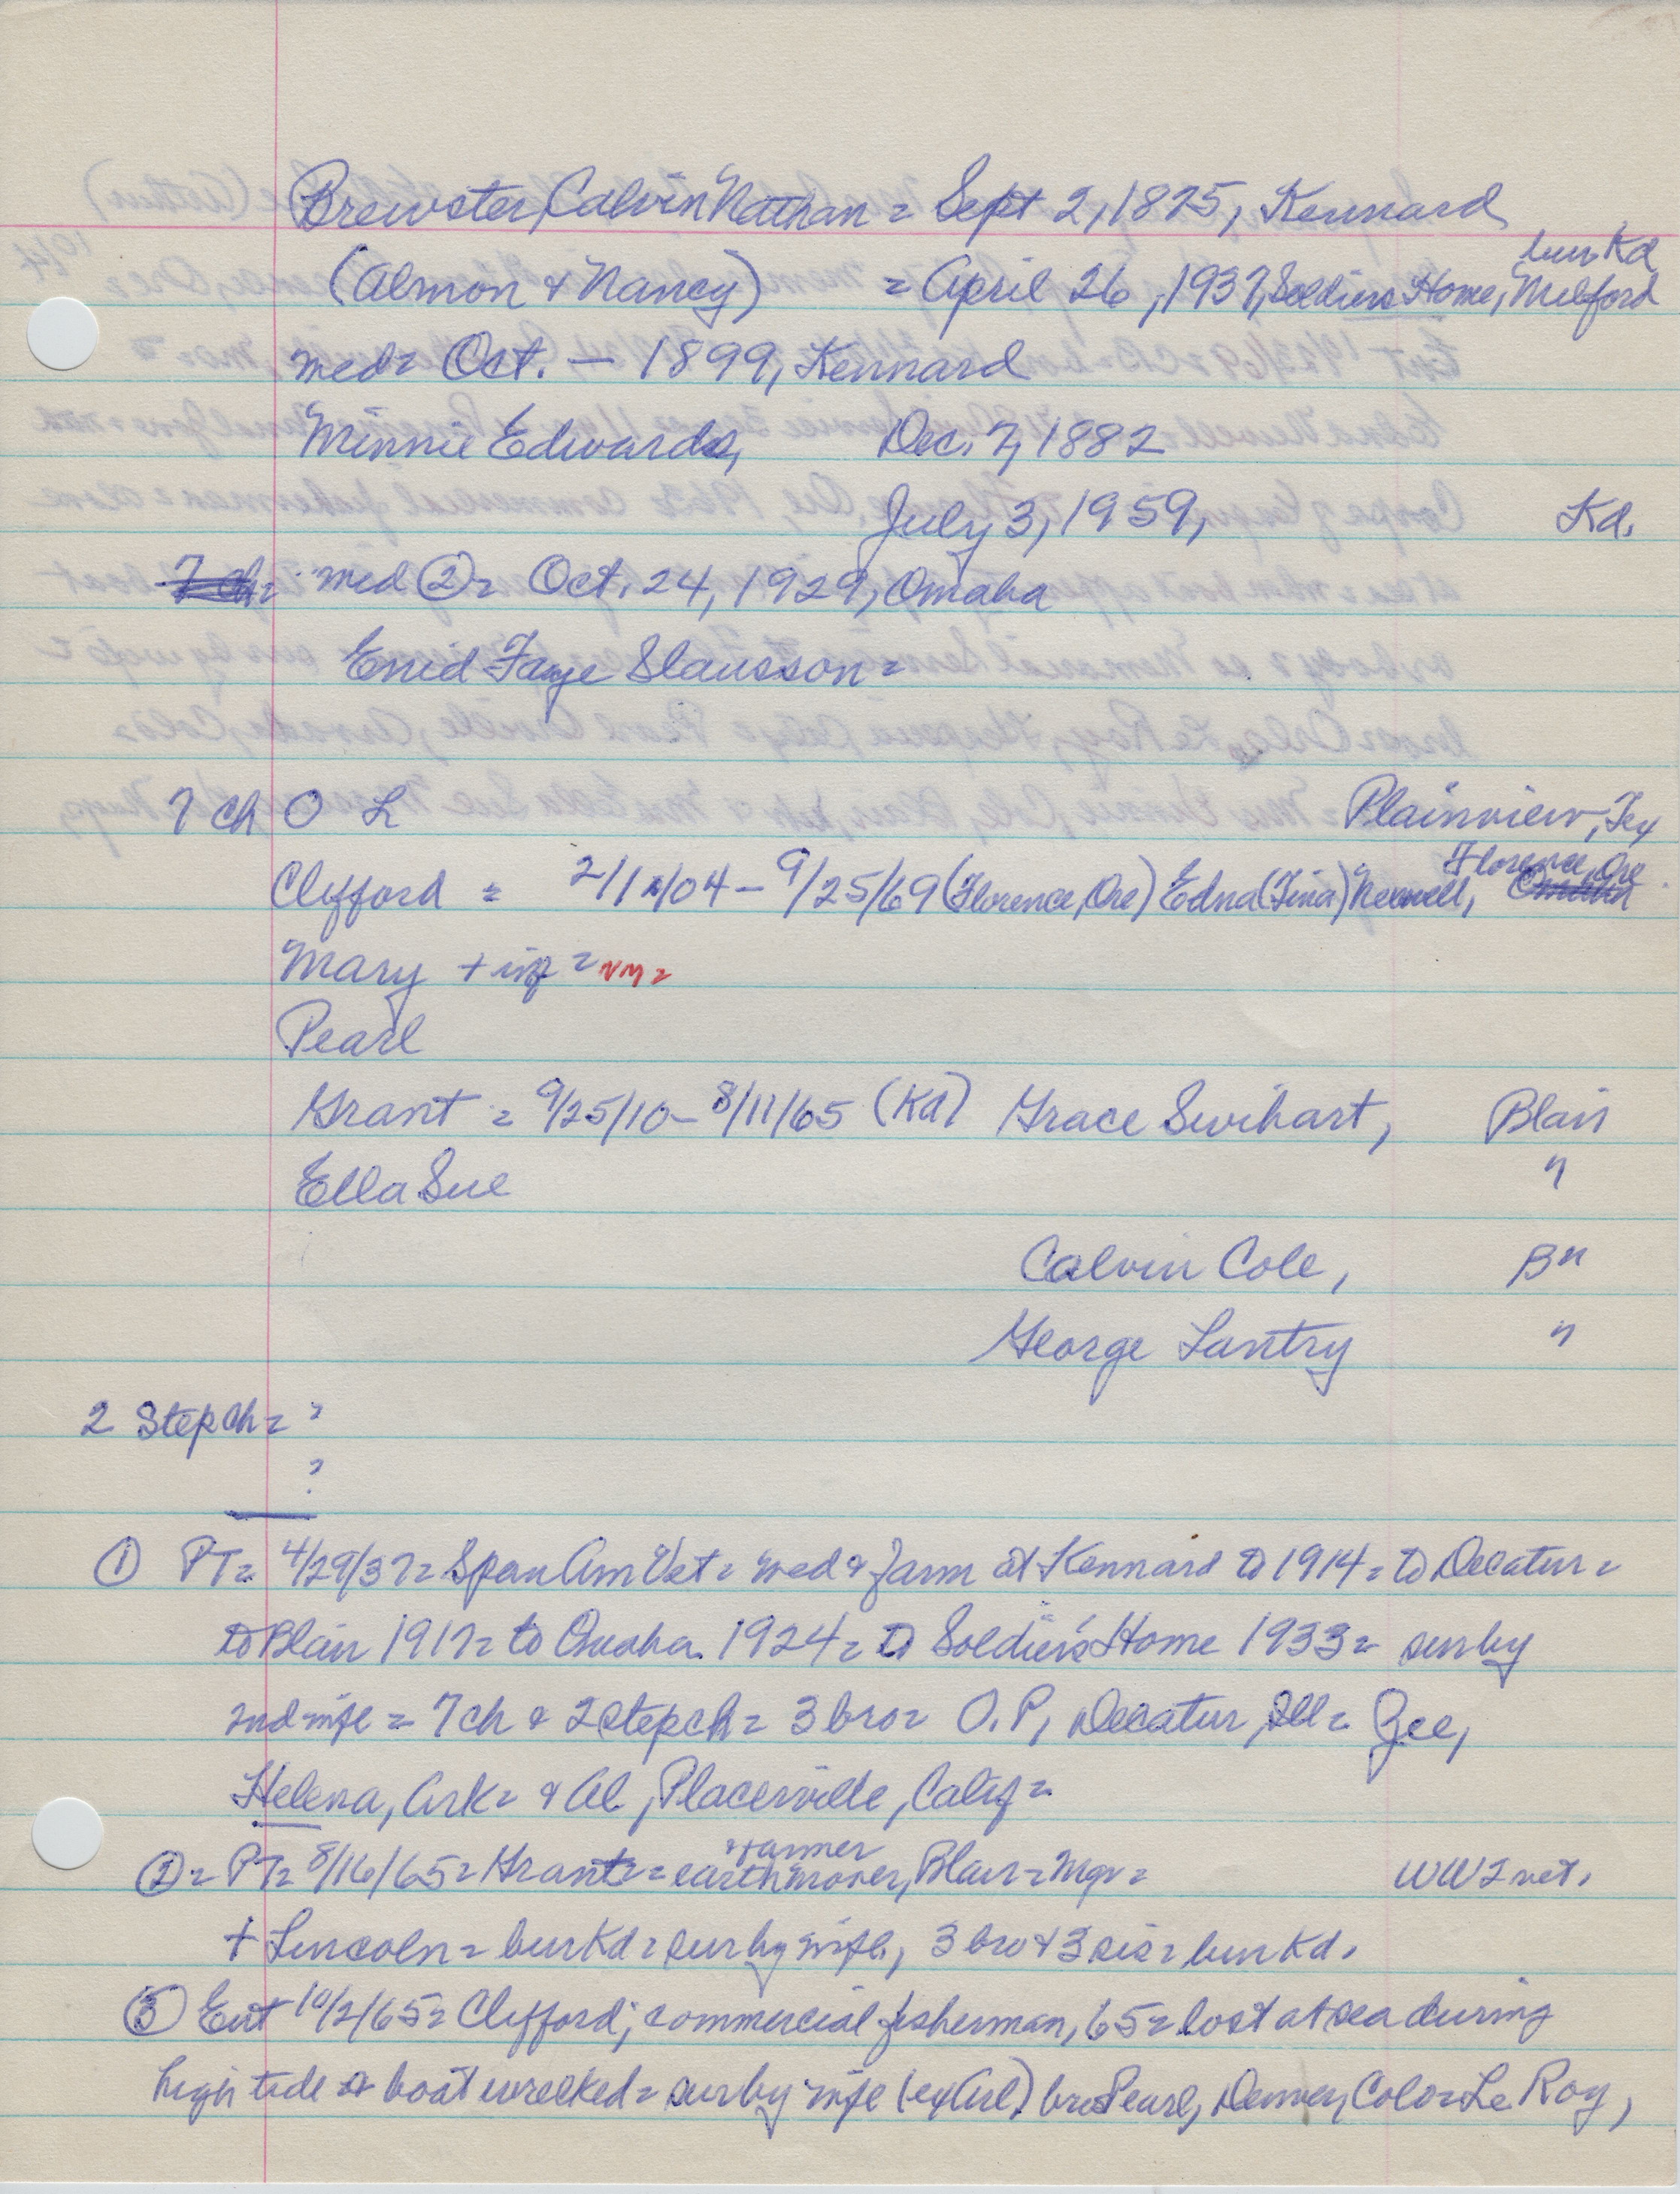 Brewster, Calvin Nathan = Sept 2, 1875, Kennard
bur Kd
(Almon & Nancy) = April 26, 1937, Soldiers Home, Milford
med = Oct. — 1899, Kennard
Minnie Edwards, Dec. 7, 1882
July 3, 1959, Kd.
7 ch = med ② = Oct. 24, 1929, Omaha
Enid Faye Slausson =
7 ch O L Plainview, Tex
Florence, Ore
Clifford = 2/12/04 - 9/25/69 (Florence, Ore) Edna (Tina) Newell, Omaha
Mary + inf = VM =
Pearl
Grant = 9/25/10 - 8/11/65 (Kd) Grace Swihart, Blair
Ella Sue "
Calvin Cole, B "
George Lantry "
2 Step ch = ?
?
① PT = 4/29/37 = Span Am Vet = med & farm at Kennard to 1914 = to Decatur =
to Blair 1917 = to Omaha 1924 = to Soldier's Home 1933 = sur by
2nd wife = 7 ch & 2 step ch = 3 bro = O.P, Decatur, Ill = Gee,
Helena, Ark = & Al, Placerville, Calif =
& farmer
② = PT = 8/16/65 = Grant = earthmover, Blair = Mgr = WW I vet.
+ Lincoln = bur Kd = sur by wife, 3 bro & 3 sis = bur Kd.
③ Ent 10/2/65 = Clifford; commercial fisherman, 65 = lost at sea during
high tide & boat wrecked = sur by wife (ex Arl) bro Pearl, Denver, Colo = Le Roy,